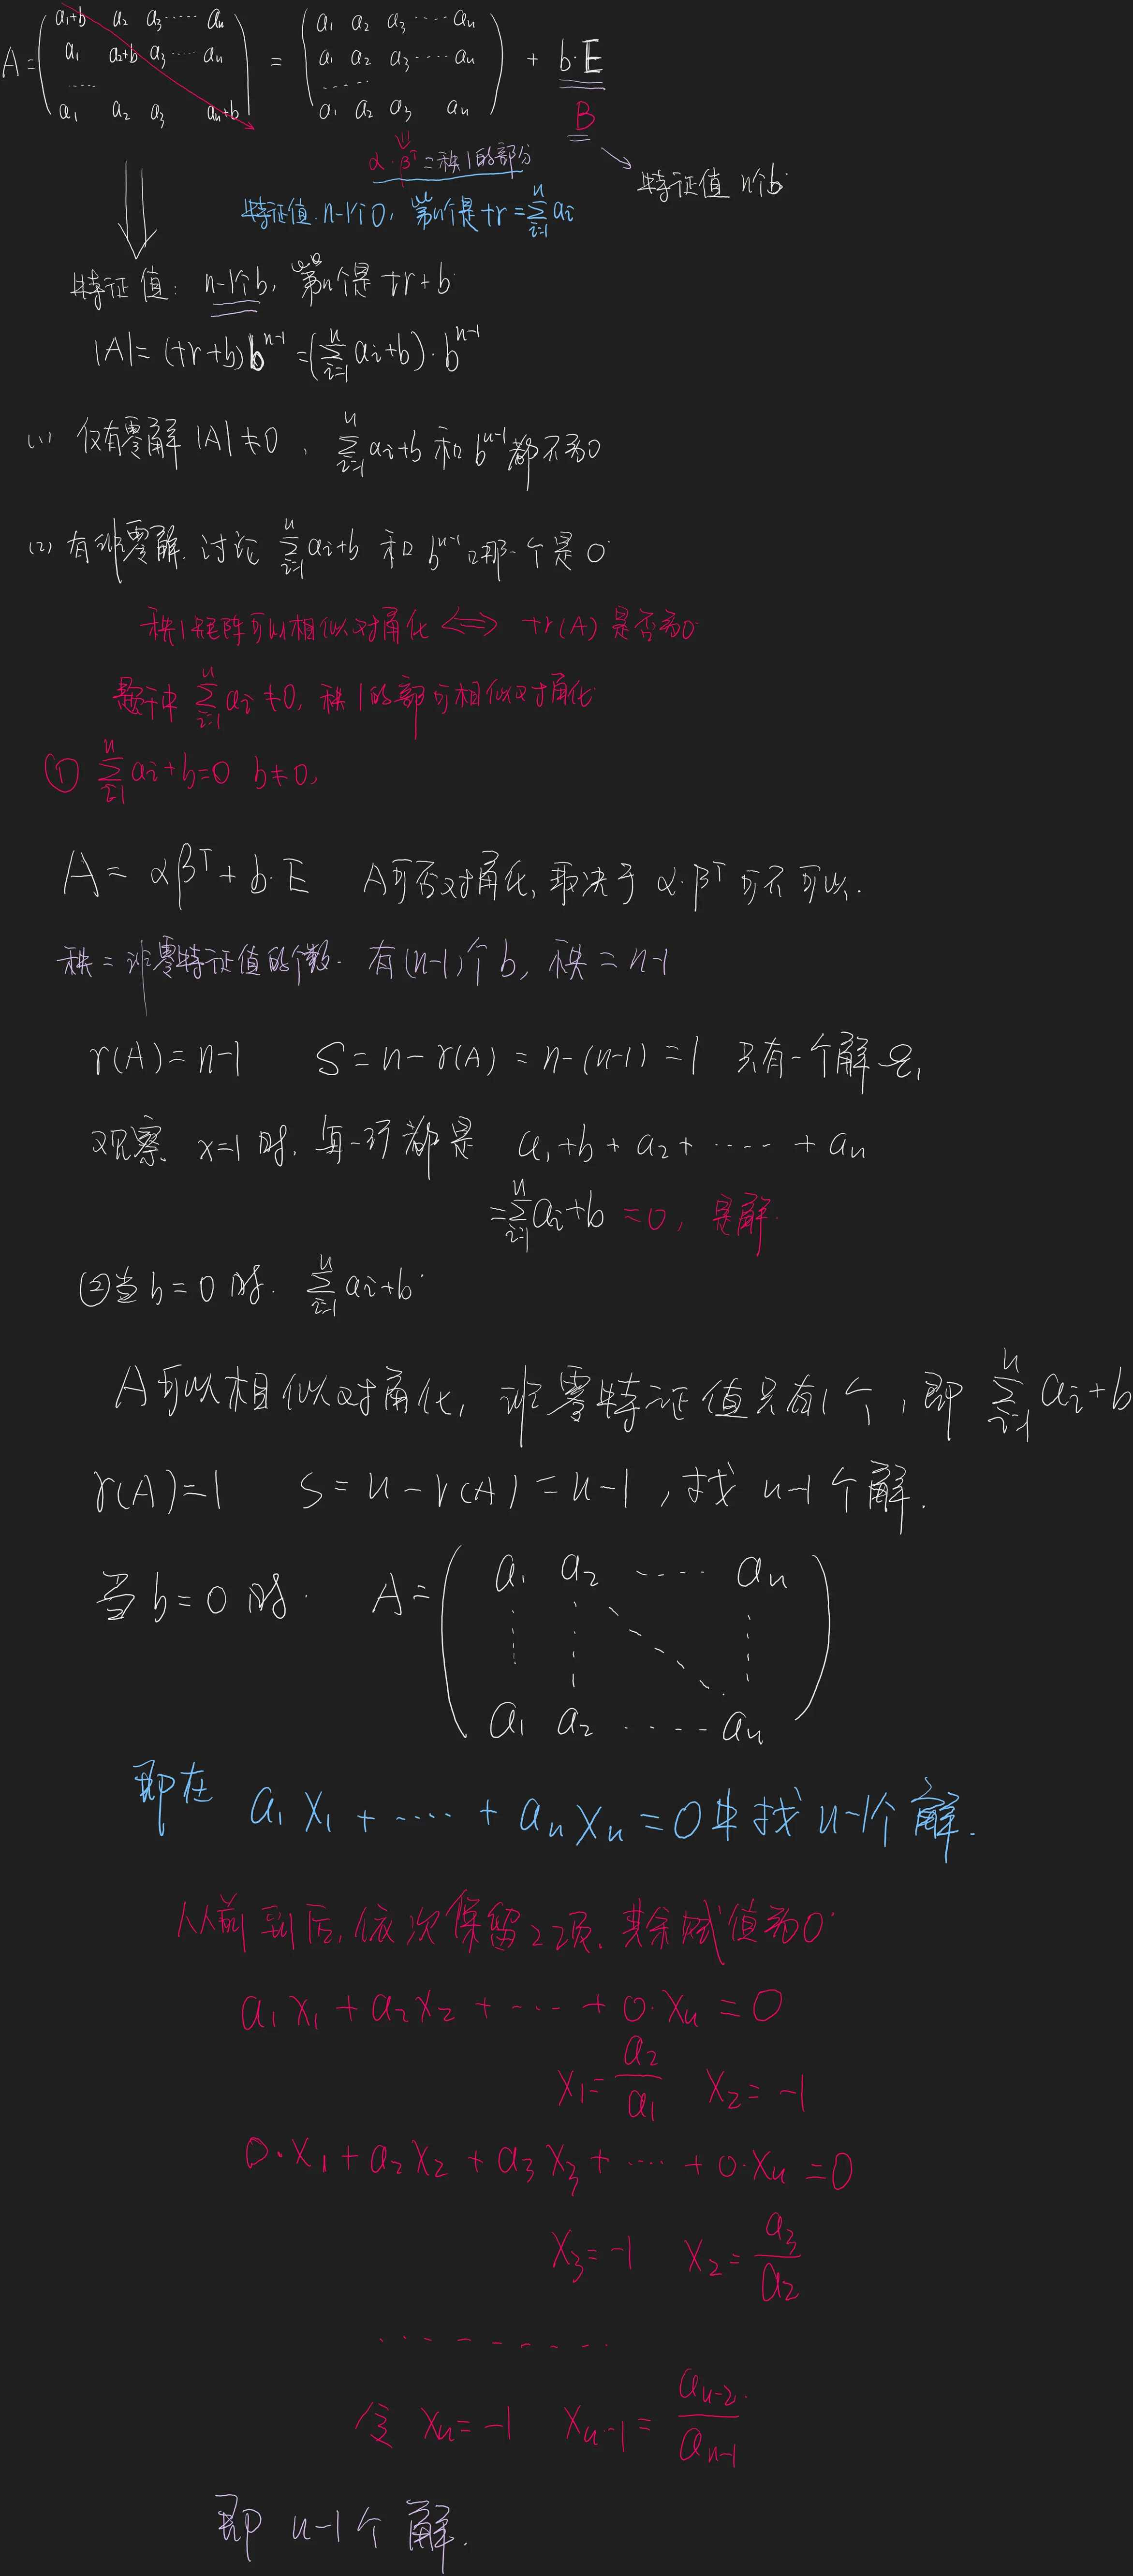 A = ( a₁+b a₂ a₃ ····· aₙ ; a₁ a₂+b a₃ ····· aₙ ; ····· ; a₁ a₂ a₃ aₙ+b ) = ( a₁ a₂ a₃ ····· aₙ ; a₁ a₂ a₃ ····· aₙ ; ····· ; a₁ a₂ a₃ aₙ ) + b·E
B
α·βᵀ = 秩1的部分
特征值 n个b
特征值. n-1个0, 第n个是 tr = ∑ᵢ₌₁ⁿ aᵢ
特征值: n-1个b, 第n个是 tr+b
|A| = (tr+b)bⁿ⁻¹ = (∑ᵢ₌₁ⁿ aᵢ+b)·bⁿ⁻¹
(1) 仅有零解 |A|≠0, ∑ᵢ₌₁ⁿ aᵢ+b 和 bⁿ⁻¹ 都不为0
(2) 有非零解. 讨论 ∑ᵢ₌₁ⁿ aᵢ+b 和 bⁿ⁻¹ 哪一个是0
秩1矩阵可以相似对角化 ⟺ tr(A) 是否为0
题干中 ∑ᵢ₌₁ⁿ aᵢ≠0, 秩1的部可相似对角化
① ∑ᵢ₌₁ⁿ aᵢ+b=0 b≠0,
A = αβᵀ+b·E A可否对角化, 取决于 α·βᵀ 可不可以.
秩=非零特征值的个数. 有(n-1)个b, 秩=n-1
r(A)=n-1 S=n-r(A)=n-(n-1)=1 只有一个解
观察 x=1时, 每一行都是 a₁+b+a₂+·····+aₙ
=∑ᵢ₌₁ⁿ aᵢ+b =0, 是解.
②当b=0时. ∑ᵢ₌₁ⁿ aᵢ+b
A可以相似对角化, 非零特征值只有1个, 即 ∑ᵢ₌₁ⁿ aᵢ+b
r(A)=1 S=n-r(A)=n-1, 找 n-1个解.
当b=0时. A=( a₁ a₂ ····· aₙ ; a₁ a₂ ····· aₙ )
即在 a₁x₁+·····+aₙxₙ=0中找n-1个解.
从前到后, 依次保留2项, 其余赋值为0
a₁x₁+a₂x₂+·····+0·xₙ=0
x₁=a₂/a₁ x₂=-1
0·x₁+a₂x₂+a₃x₃+·····+0·xₙ=0
x₃=-1 x₂=a₃/a₂
··········
令 xₙ=-1 xₙ₋₁=aₙ₋₂/aₙ₋₁
即 n-1个解.